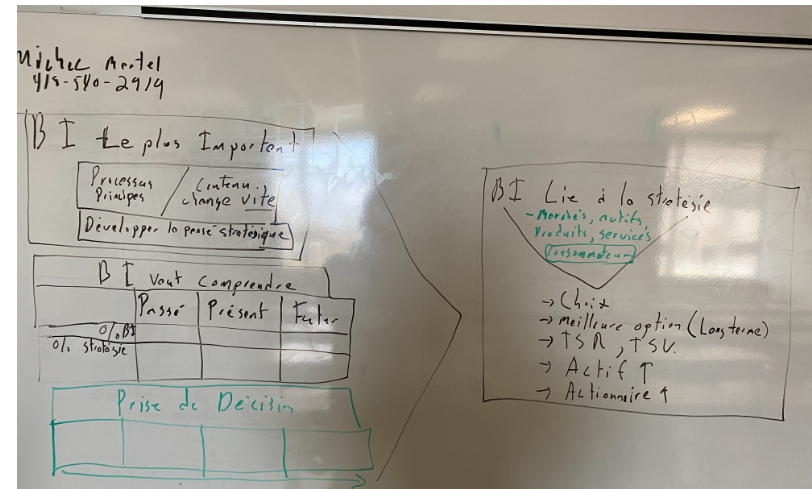 Michel Martel
418-540-2919
BI Le plus Important
Processus
Principes
Contenu:
change vite
Développer la pensé stratégique
BI Vout comprendre
Passé Présent Futur
% BI
% stratégie
Prise de Décision
BI Lie à la stratégie
- Marchés, actifs
Produits, services
Consommateur
→ Choix
→ meilleure option (Long terme)
→ TSR, TSV.
→ Actif ↑
→ Actionnaire ↑